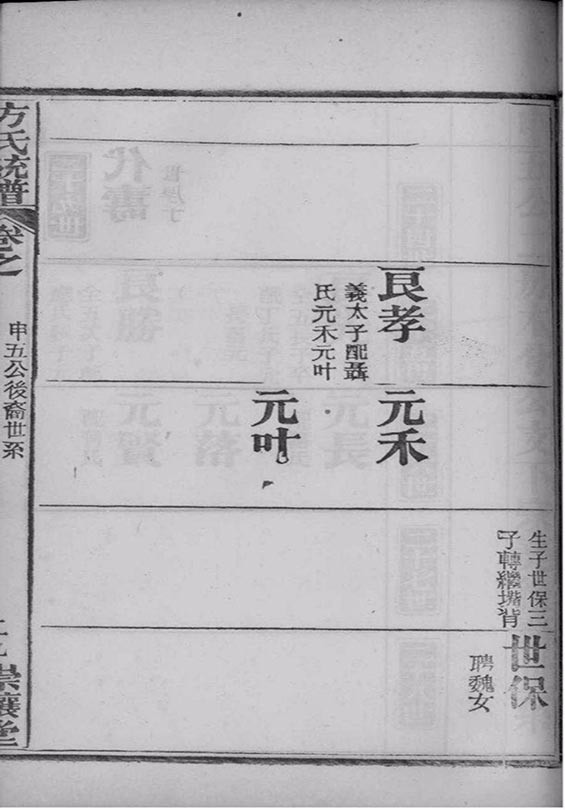 生子世保三
子轉繼
世保
聘魏女
良孝
義太子配聶
氏元禾元叶
元禾
元叶
方氏統譜
卷之
申五公後裔世系